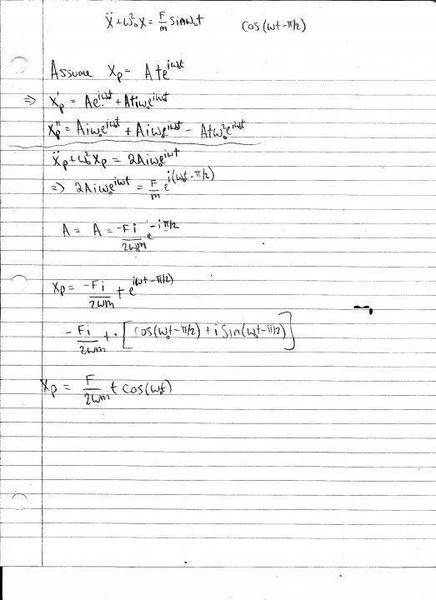 ẍ + ω₀² x = F/m sin ω₀t    cos(ωt - π/2)
Assume x_p = Ate^{iω₀t}
⇒ x_p' = Ae^{iω₀t} + Atiω₀e^{iω₀t}
x_p'' = Aiω₀e^{iω₀t} + Aiω₀e^{iω₀t} - Atω₀²e^{iω₀t}
ẍ_p + ω₀² x_p = 2Aiω₀e^{iω₀t}
⇒ 2Aiω₀e^{iω₀t} = F/m e^{i(ω₀t - π/2)}
A = A = -Fi/2ω₀m e^{-iπ/2}
x_p = -Fi/2ωm t e^{i(ωt - π/2)}
-Fi/2ωm t · [cos(ω₀t - π/2) + i sin(ω₀t - π/2)]
x_p = F/2ωm t cos(ω₀t)